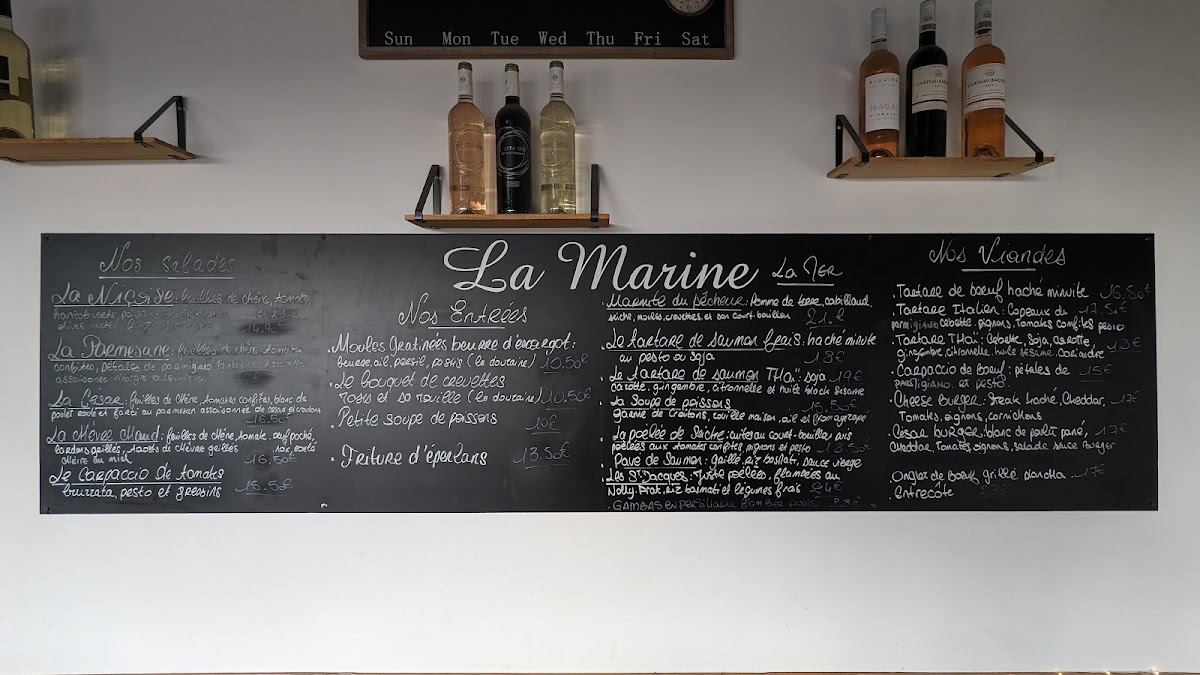 Sun Mon Tue Wed Thu Fri Sat
La Marine
Nos Salades
La Niçoise: feuilles de chêne, tomate,
14.90€
La Parmesane: feuilles de chêne, tomates
confites, pétales de parmigiano
La César: feuilles de chêne, tomates confites, blanc de
16.50€
La Chèvre Chaud: feuilles de chêne, tomate, oeuf poché,
lardons grillés, toasts de chèvre grillés
chèvre au miel
16.50€
Le Carpaccio de tomates
burrata, pesto et gressins 15.50€
Nos Entrées
.Moules Gratinées beurre d'escargot:
beurre, ail, persil, pastis (la douzaine) 10.50€
.Le Bouquet de crevettes
roses et sa rouille (la douzaine) 10.50€
Petite soupe de poissons 10€
.Friture d'éperlans 13.50€
La Mer
.Marmite du pêcheur: Pomme de terre, cabillaud,
seiche, moules, crevettes, et son court-bouillon 21.€
.Le tartare de saumon frais: haché minute
au pesto ou soja 18€
.Le Tartare de saumon THaï: soja 19€
carotte, gingembre, citronnelle et huile black sésame
.La Soupe de poissons 15.50€
Garnie de croûtons, rouille maison, ail et fromage rapé
.La poêlée de Seiche: cuites au court-bouillon puis
poêlées aux tomates confites, pignons et pesto 18.50€
.Pavé de Saumon: grillé, riz basmati, sauce vierge
.Les St Jacques: Juste poêlées, flambées au
Noilly Prat, riz basmati et légumes frais 24€
.GAMBAS
Nos Viandes
.Tartare de bœuf haché minute 16.50€
.Tartare Italien: Copeaux de 17.50€
parmigiano, cebette, pignons, Tomates confites, pesto
.Tartare THaï: Cebette, Soja, carotte, 18€
gingembre, citronnelle, huile sésame, coriandre
.Carpaccio de Bœuf: pétales de 15€
parmigiano et pesto.
.Cheese Burger: Steak haché, Cheddar, 17€
Tomates, oignons, cornichons
.César Burger: blanc de poulet pané, 17€
cheddar, Tomates, oignons, salade sauce Burger
Onglet de Bœuf grillé plancha 17€
Entrecôte